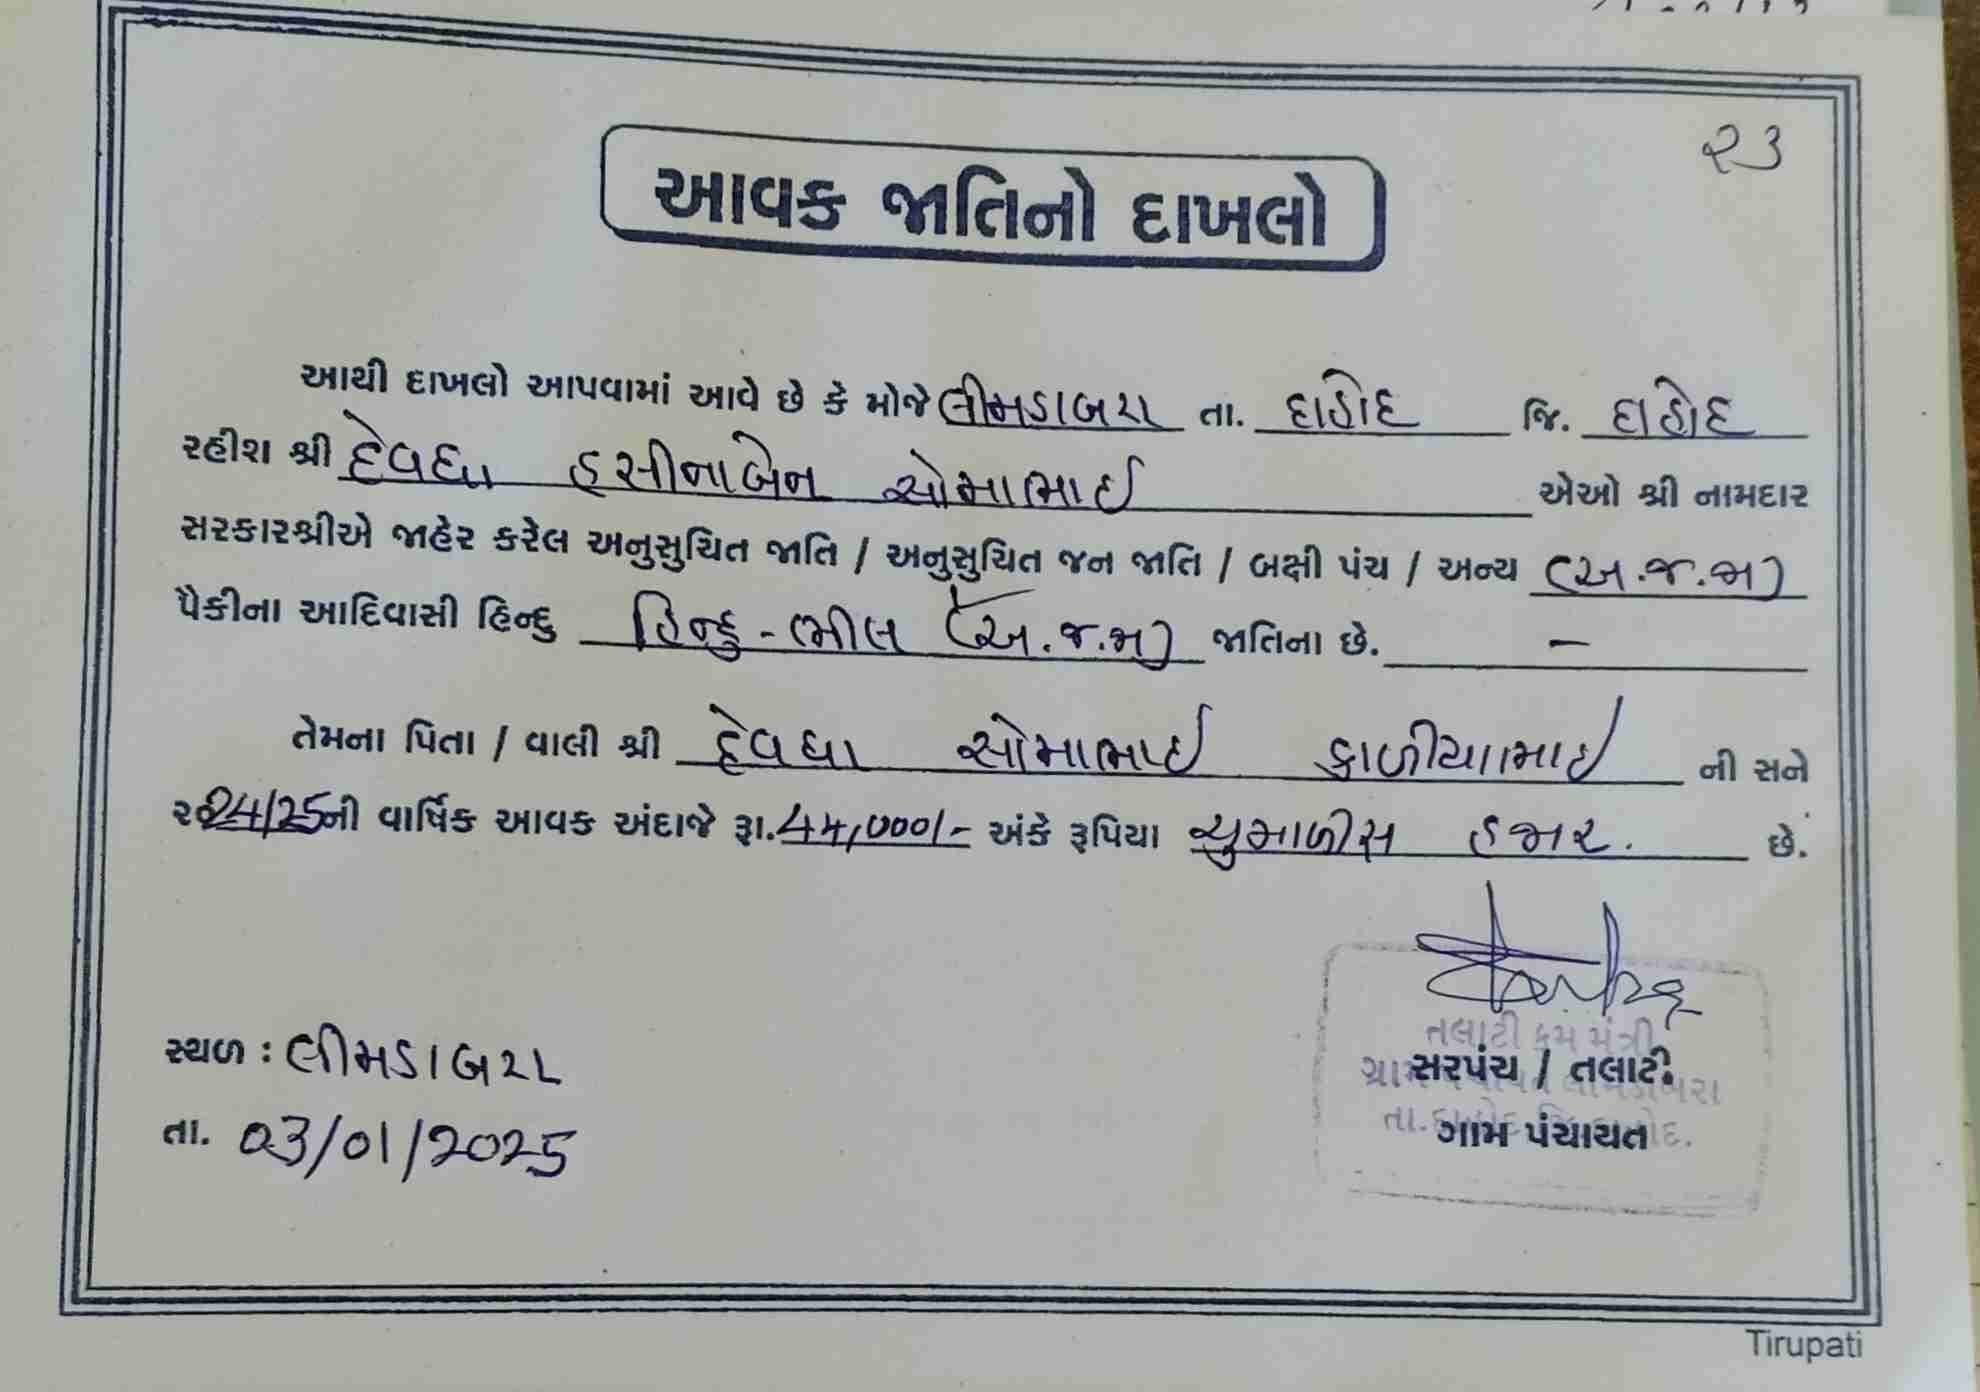 ૨૩
આવક જાતિનો દાખલો
આથી દાખલો આપવામાં આવે છે કે મોજે લીમડાબરા તા. દાહોદ જિ. દાહોદ
રહીશ શ્રી દેવધા હસીનાબેન સોમાભાઈ એઓ શ્રી નામદાર
સરકારશ્રીએ જાહેર કરેલ અનુસુચિત જાતિ / અનુસુચિત જન જાતિ / બક્ષી પંચ / અન્ય (અ.જ.જા)
પૈકીના આદિવાસી હિન્દુ હિન્દુ - ભીલ (અ.જ.જા) જાતિના છે. –
તેમના પિતા / વાલી શ્રી દેવધા સોમાભાઈ કાળીયાભાઈ ની સને
૨૦24/25ની વાર્ષિક આવક અંદાજે રૂા.44,000/- અંકે રૂપિયા ચુમાળીસ હજાર. છે.
તલાટી કમ મંત્રી
સ્થળ : લીમડાબરા સરપંચ / તલાટી
તા. 03/01/2025 ગામ પંચાયત
Tirupati